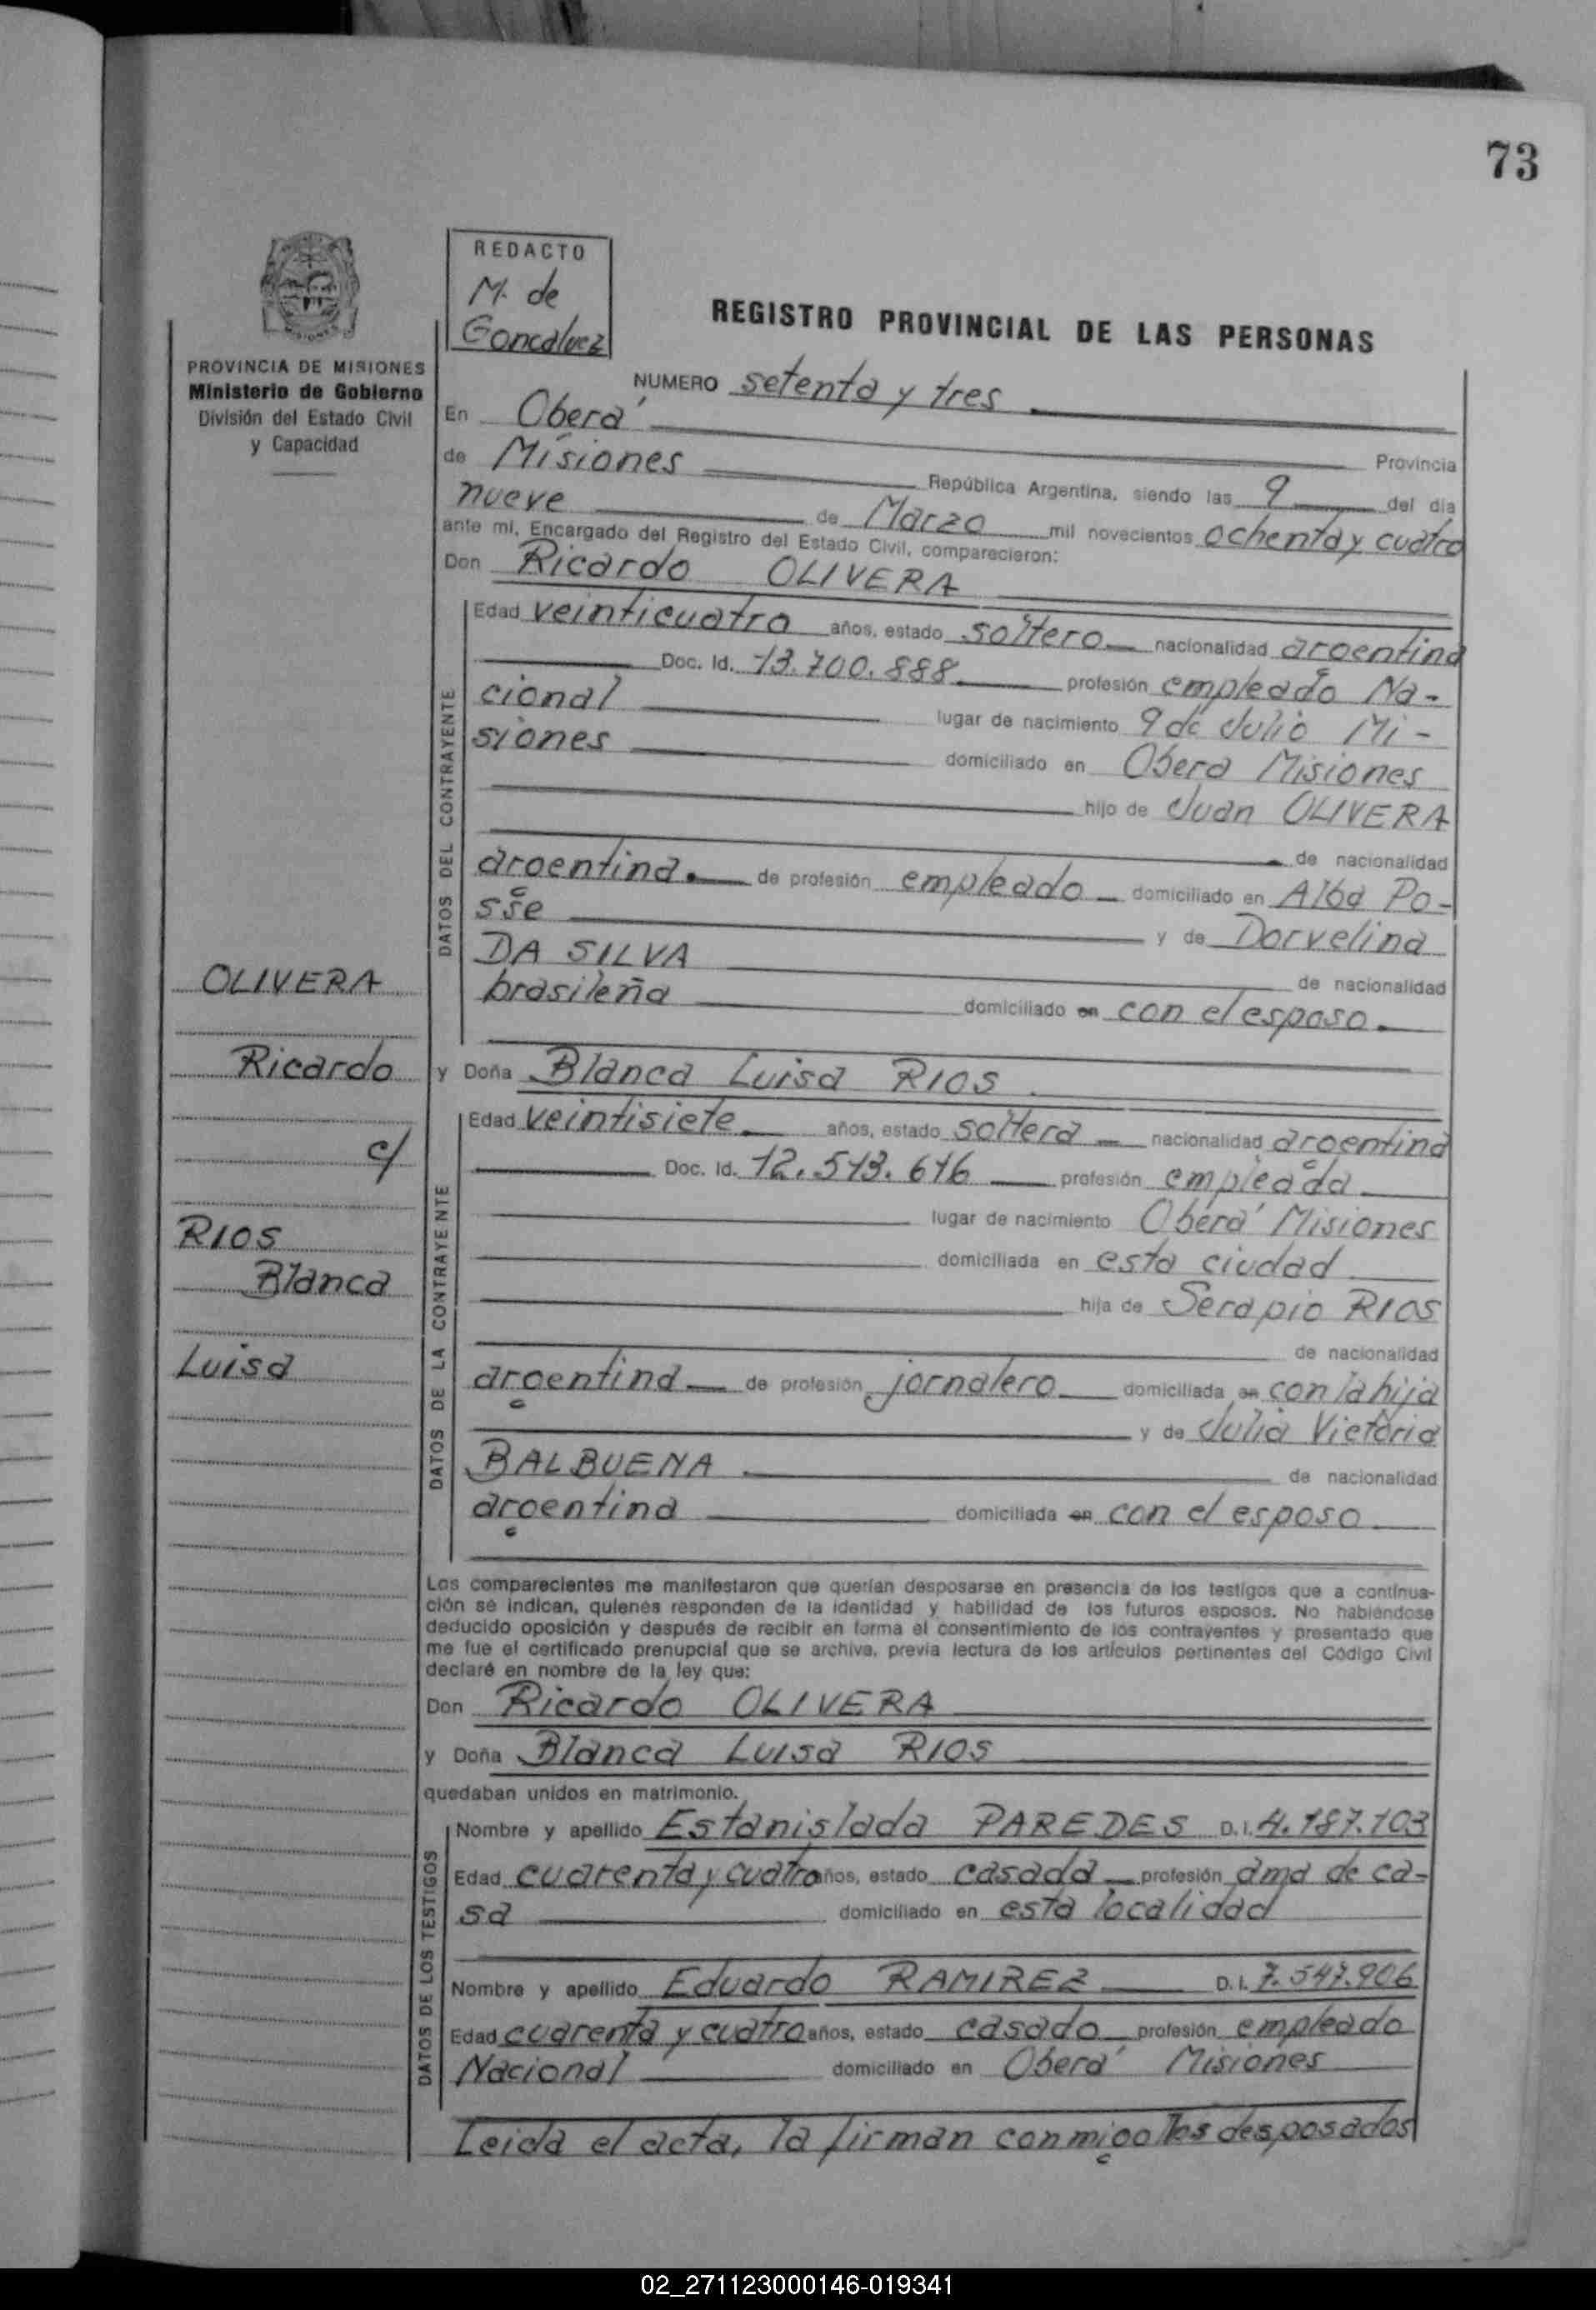 73
REDACTO
M. de
Goncalvez
REGISTRO PROVINCIAL DE LAS PERSONAS
PROVINCIA DE MISIONES
Ministerio de Gobierno
División del Estado Civil
y Capacidad
NUMERO setenta y tres
En Oberá
Provincia
de Misiones República Argentina, siendo las 9 del día
nueve de Marzo mil novecientos ochenta y cuatro
ante mí, Encargado del Registro del Estado Civil, comparecieron:
Don Ricardo OLIVERA
DATOS DEL CONTRAYENTE
Edad veinticuatro años, estado soltero nacionalidad argentina
Doc. Id. 13.700.888 profesión empleado Na-
cional lugar de nacimiento 9 de Julio Mi-
siones domiciliado en Oberá Misiones
hijo de Juan OLIVERA
de nacionalidad
argentina. de profesión empleado domiciliado en Alba Po-
sse y de Dorvelina
DA SILVA
de nacionalidad
brasileña domiciliado en con el esposo.
y Doña Blanca Luisa RIOS
DATOS DE LA CONTRAYENTE
Edad veintisiete años, estado soltera nacionalidad argentina
Doc. Id. 12.513.616 profesión empleada
lugar de nacimiento Oberá Misiones
domiciliada en esta ciudad
hija de Serapio RIOS
de nacionalidad
argentina de profesión jornalero domiciliada en con la hija
y de Julia Victoria
BALBUENA de nacionalidad
argentina domiciliada en con el esposo
OLIVERA
Ricardo
c/
RIOS
Blanca
Luisa
Los comparecientes me manifestaron que querían desposarse en presencia de los testigos que a continua-
ción se indican, quienes responden de la identidad y habilidad de los futuros esposos. No habiéndose
deducido oposición y después de recibir en forma el consentimiento de los contrayentes y presentado que
me fue el certificado prenupcial que se archiva, previa lectura de los artículos pertinentes del Código Civil
declaré en nombre de la ley que:
Don Ricardo OLIVERA
y Doña Blanca Luisa RIOS
quedaban unidos en matrimonio.
DATOS DE LOS TESTIGOS
Nombre y apellido Estanislada PAREDES D.I. 4.187.103
Edad cuarenta y cuatro años, estado casada profesión ama de ca-
sa domiciliado en esta localidad
Nombre y apellido Eduardo RAMIREZ D.I. 7.547.906
Edad cuarenta y cuatro años, estado casado profesión empleado
Nacional domiciliado en Oberá Misiones
Leida el acta, la firman conmigo los desposados
02_271123000146-019341